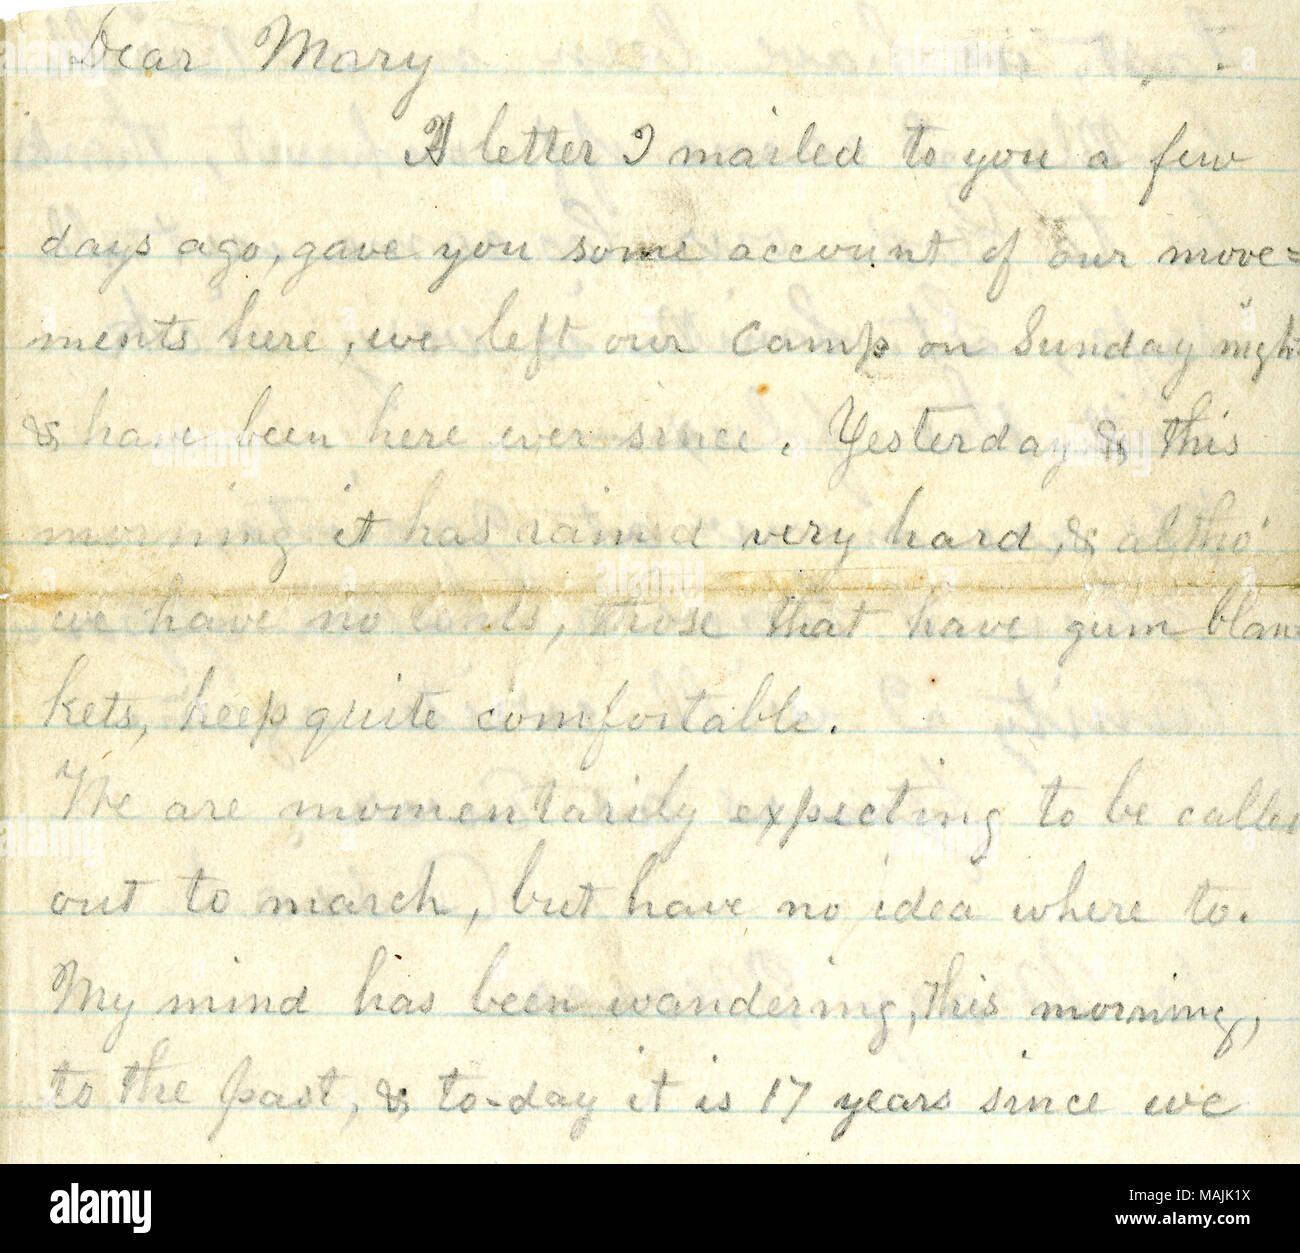 Dear Mary
A letter I mailed to you a few
days ago, gave you some account of our move=
ments here, we left our Camp on Sunday night
& have been here ever since. Yesterday & this
morning it has rained very hard, & altho'
we have no tents, those that have gum blan=
kets, keep quite comfortable.
We are momentarily expecting to be called
out to march, but have no idea where to.
My mind has been wandering, this morning,
to the past, & to-day it is 17 years since we
alamy
Image ID: MAJK1X
www.alamy.com